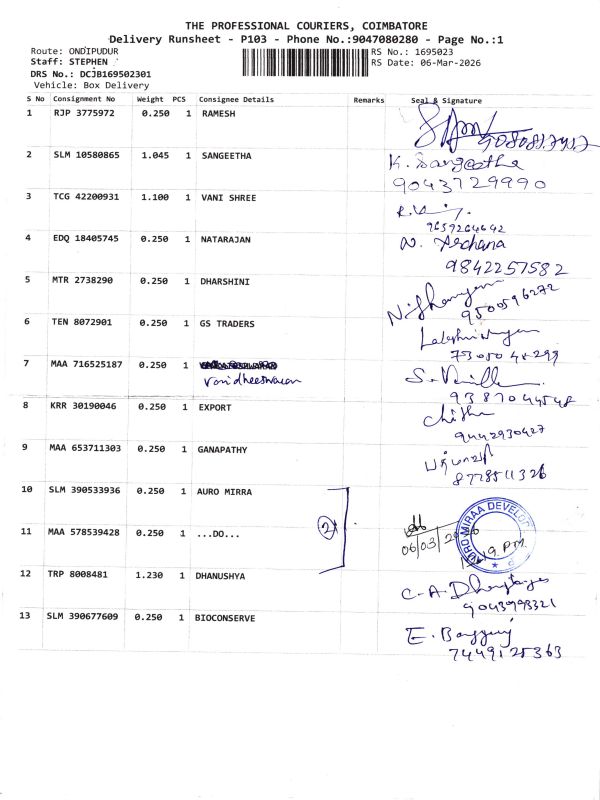 THE PROFESSIONAL COURIERS, COIMBATORE
Delivery Runsheet - P103 - Phone No.:9047080280 - Page No.:1
Route: ONDIPUDUR
RS No.: 1695023
Staff: STEPHEN
RS Date: 06-Mar-2026
DRS No.: DCJB169502301
Vehicle: Box Delivery
S No Consignment No Weight PCS Consignee Details Remarks Seal & Signature
1 RJP 3775972 0.250 1 RAMESH
2 SLM 10580865 1.045 1 SANGEETHA K. Sangeetha
9043729990
3 TCG 42200931 1.100 1 VANI SHREE
9659264642
4 EDQ 18405745 0.250 1 NATARAJAN N. Archana
9842257582
5 MTR 2738290 0.250 1 DHARSHINI
9500596272
6 TEN 8072901 0.250 1 GS TRADERS
7 MAA 716525187 0.250 1
8 KRR 30190046 0.250 1 EXPORT Chitha
9442930427
9 MAA 653711303 0.250 1 GANAPATHY
8778511326
10 SLM 390533936 1 AURO MIRRA
11 MAA 578539428 0.250 1 ...DO... 2
AURO MIRAA DEVELOP
06/03/
12 TRP 8008481 1.230 1 DHANUSHYA
13 SLM 390677609 0.250 1 BIOCONSERVE
7449125363